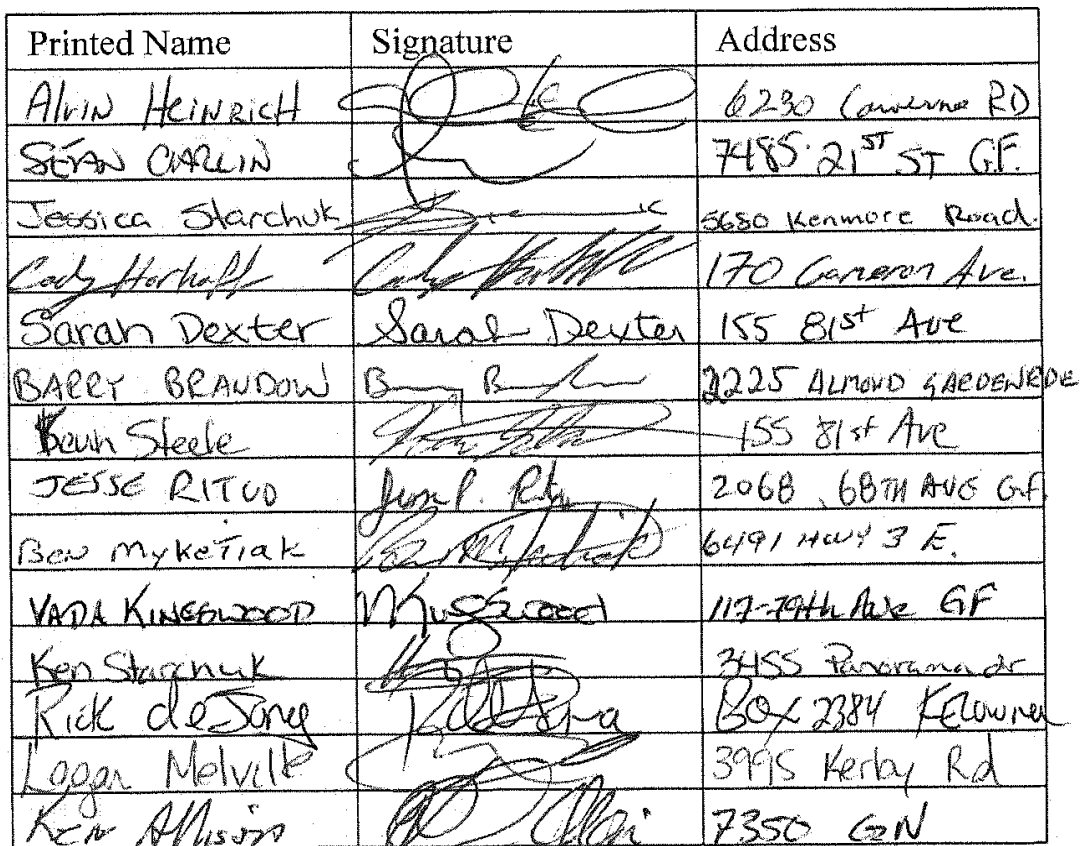 Printed Name Signature Address
Alvin Heinrich 6230 RD
SEAN CARLIN 7485 21ST ST G.F.
Jessica Starchuk 5680 Kenmore Road.
Cody 170 Cameron Ave.
Sarah Dexter Sarah Dexter 155 81st Ave
BARRY BRANDOW 2225 ALMOND GARDENS RDE
Kevin Steele 155 81st Ave
JESSE RITCO 2068 68TH AVE G.F.
Ben Myketiak 6491 HWY 3 E.
VADA KINGSWOOD 117-79th Ave GF
Ken Starchuk 3455 Panorama dr
Rick deJong Box 2384 Kelowna
Logan Melville 3995 Kerby Rd
Ken Allison 7350 GN